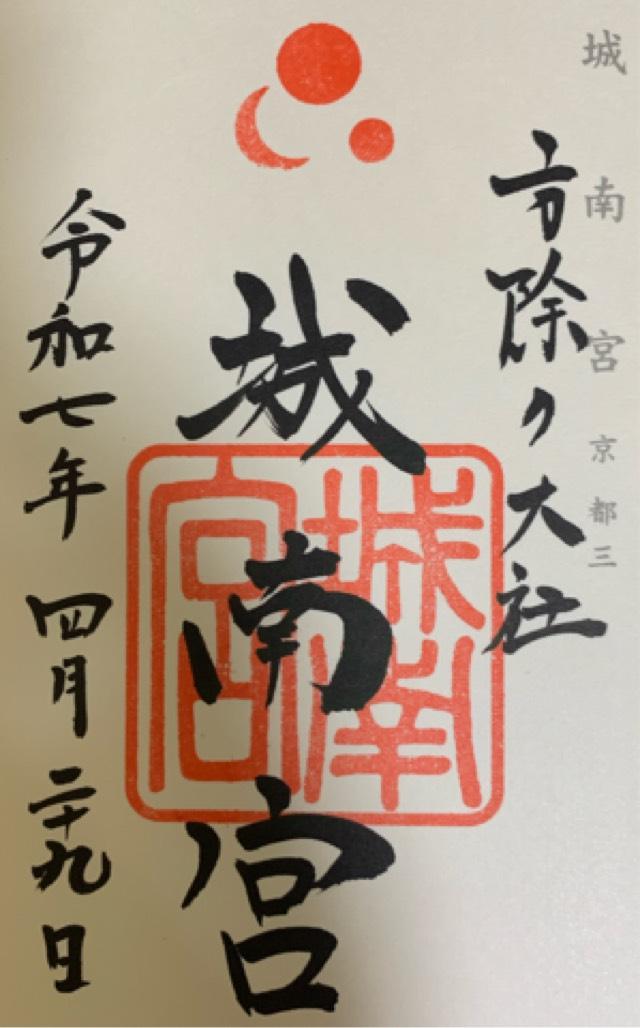 城南宮 京都三
方除の大社
城南宮
城南宮
令和七年 四月二十九日